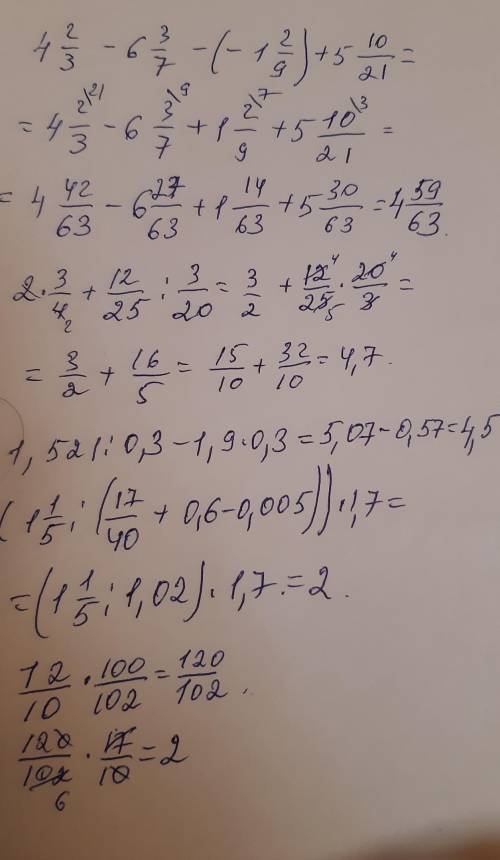 4 2/3 - 6 3/7 - (- 1 2/9) + 5 10/21 =
= 4 2\21/3 - 6 3\9/7 + 1 2\7/9 + 5 10\3/21 =
= 4 42/63 - 6 27/63 + 1 14/63 + 5 30/63 = 4 59/63.
2 · 3/4 2 + 12/25 : 3/20 = 3/2 + 12 4/25 5 · 20 4/3 =
= 3/2 + 16/5 = 15/10 + 32/10 = 4,7.
1,521 : 0,3 - 1,9 · 0,3 = 5,07 - 0,57 = 4,5
(1 1/5 : (17/40 + 0,6 - 0,005)) · 1,7 =
= (1 1/5 : 1,02) · 1,7. = 2.
12/10 · 100/102 = 120/102.
120/102 6 · 17/10 = 2